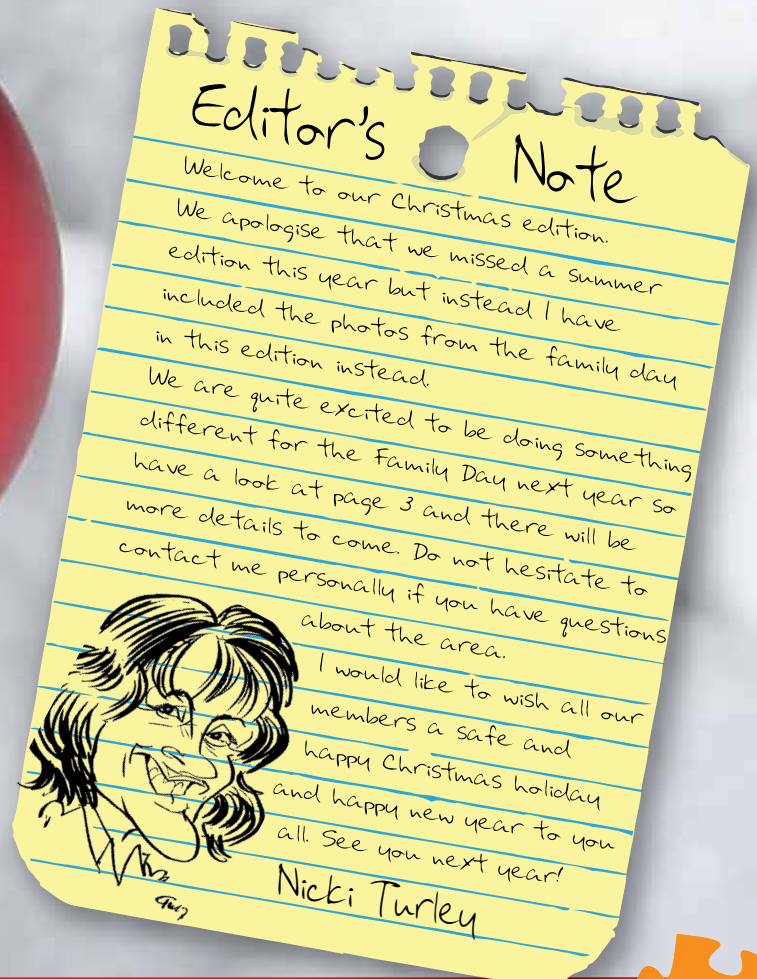 Editor's Note
Welcome to our Christmas edition.
We apologise that we missed a summer
edition this year but instead I have
included the photos from the family day
in this edition instead.
We are quite excited to be doing something
different for the Family Day next year so
have a look at page 3 and there will be
more details to come. Do not hesitate to
contact me personally if you have questions
about the area.
I would like to wish all our
members a safe and
happy Christmas holiday
and happy new year to you
all. See you next year!
Nicki Turley